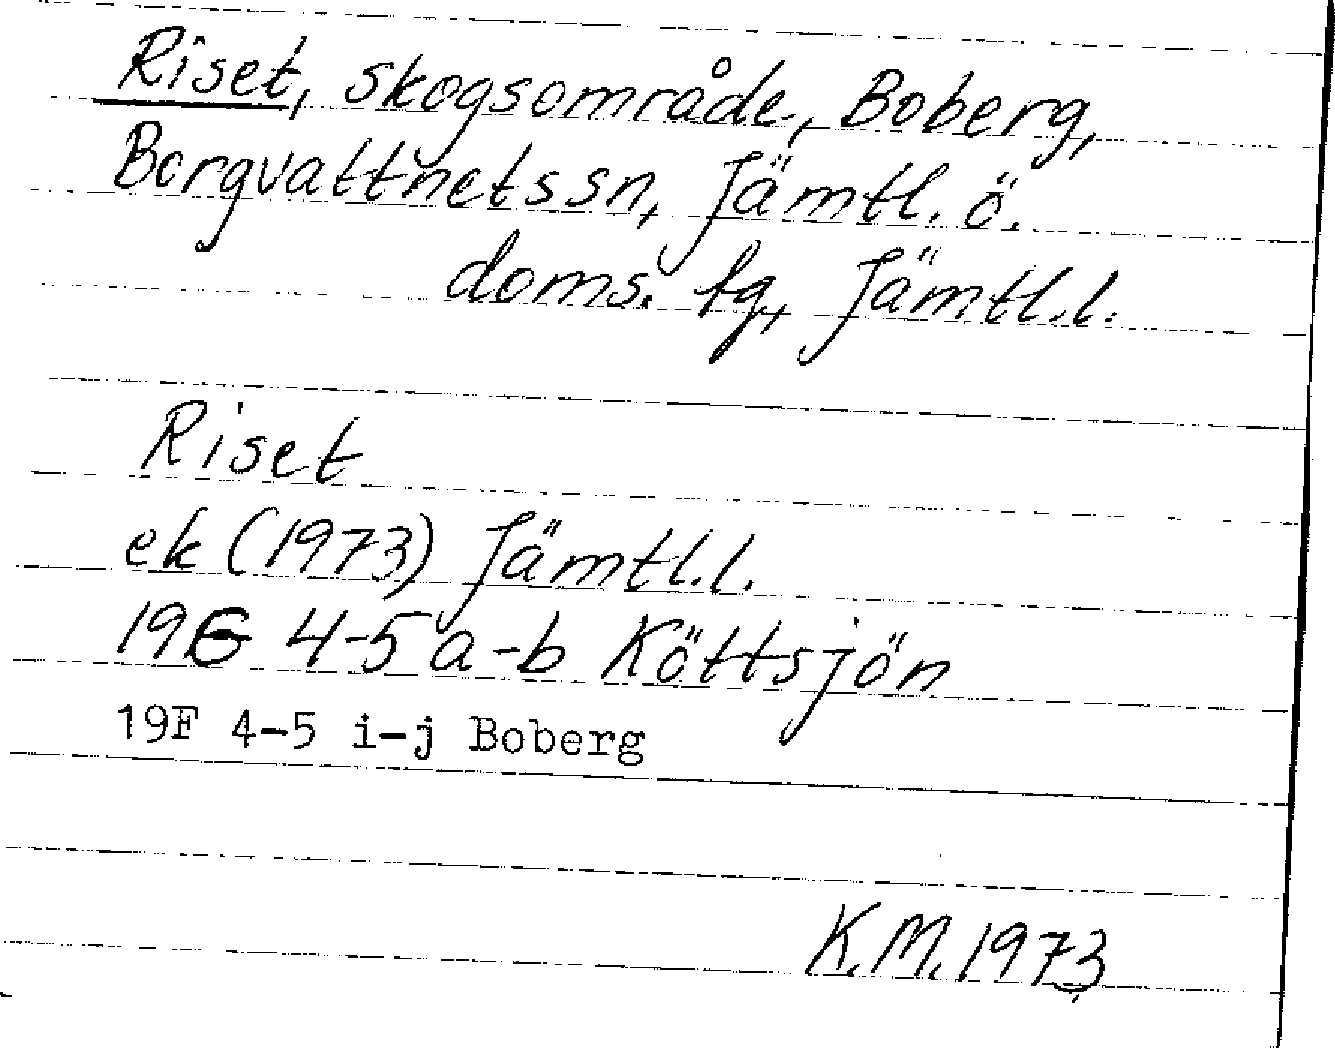 Riset, skogsområde, Boberg,
Borgvattnetssn, Jämtl. ö.
doms. fg, Jämtl.l.
Riset
ek (1973) Jämtl.l.
19G 4-5 a-b Köttsjön
19F 4-5 i-j Boberg
K.M. 1973